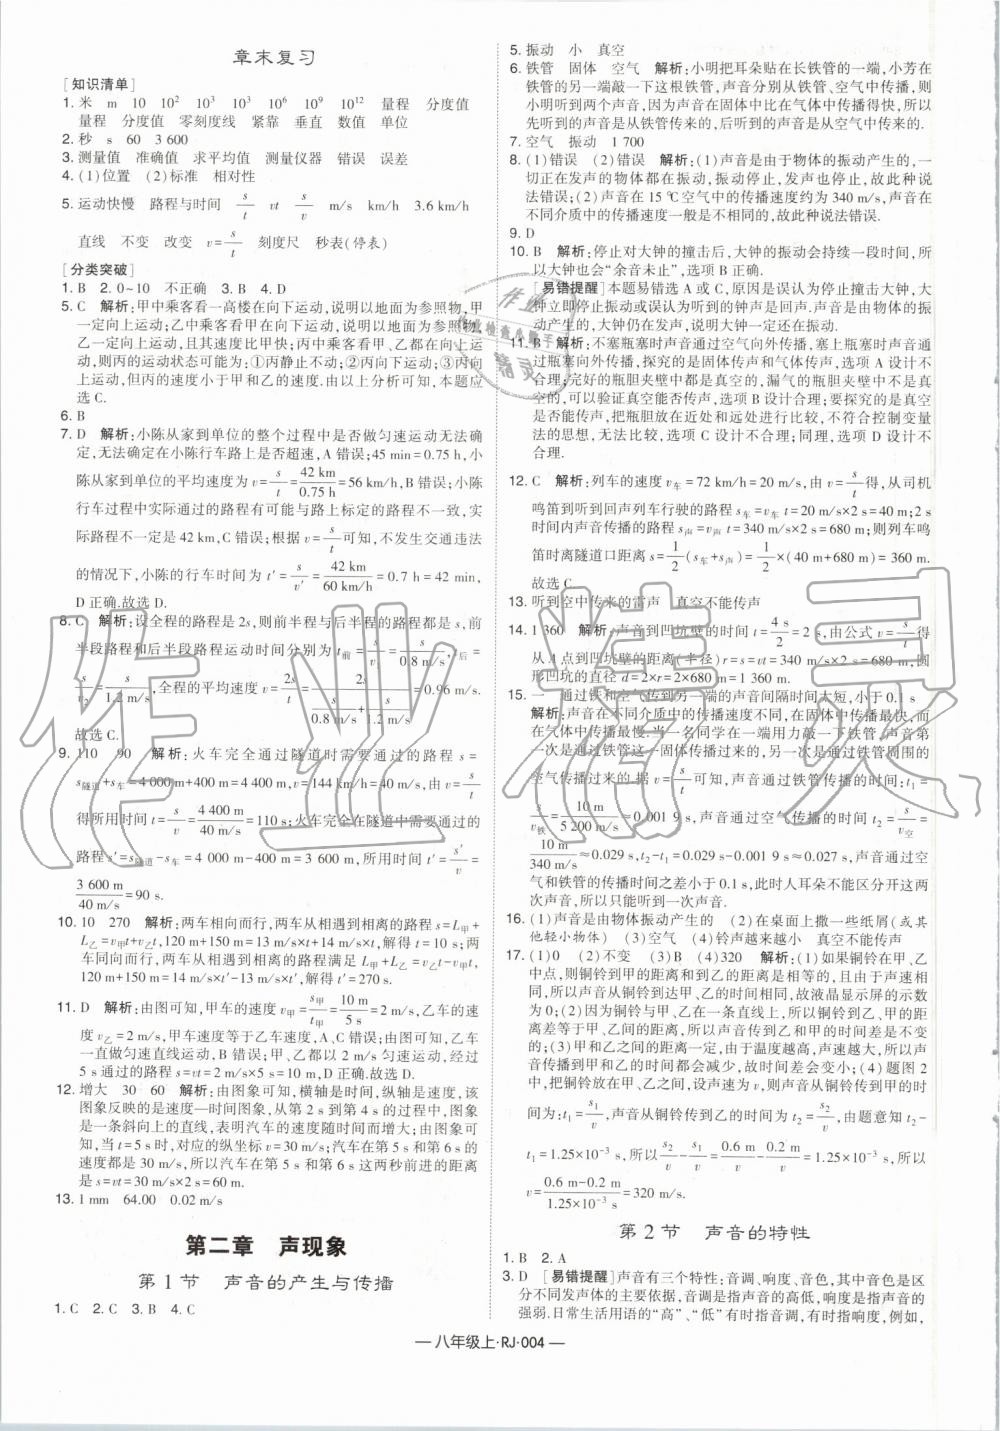 章末复习
[知识清单]
1. 米　m　10　10²　10³　10⁶　10⁹　10¹²　量程　分度值
量程　分度值　零刻度线　紧靠　垂直　数值　单位
2. 秒　s　60　3 600
3. 测量值　准确值　求平均值　测量仪器　错误　误差
4. (1)位置　(2)标准　相对性
5. 运动快慢　路程与时间　s/t　vt　s/v　m/s　km/h　3.6 km/h
直线　不变　改变　v=s/t　刻度尺　秒表(停表)
[分类突破]
1. B　2. 0~10　不正确　3. B　4. D
5. C　解析:甲中乘客看一高楼在向下运动,说明以地面为参照物,甲
一定向上运动;乙中乘客看甲在向下运动,说明以地面为参照物,
乙一定向上运动,且其速度比甲快;丙中乘客看甲、乙都在向上运
动,则丙的运动状态可能为:①丙静止不动;②丙向下运动;③丙向
上运动,但丙的速度小于甲和乙的速度.由以上分析可知,本题应
选 C.
6. B
7. D　解析:小陈从家到单位的整个过程中是否做匀速运动无法确
定,无法确定在小陈行车路上是否超速,A 错误;45 min=0.75 h,小
陈从家到单位的平均速度为 v=s/t=42 km/0.75 h=56 km/h,B 错误;小陈
行车过程中实际通过的路程有可能与路上标定的路程不一致,实
际路程不一定是 42 km,C 错误;根据 v=s/t可知,不发生交通违法
的情况下,小陈的行车时间为 t′=s/v′=42 km/60 km/h=0.7 h=42 min,
D 正确.故选 D.
8. C　解析:设全程的路程是 2s,则前半程与后半程的路程都是 s,前
半段路程和后半段路程运动时间分别为 t前=s/v1=s/0.8 m/s,t后=
s/v2=s/1.2 m/s,全程的平均速度为 v=2s/t=2s/(s/0.8 m/s+s/1.2 m/s)=0.96 m/s.
故选 C.
9. 110　90　解析:火车完全通过隧道时需要通过的路程 s=
s隧道+s车=4 000 m+400 m=4 400 m,v=144 km/h=40 m/s,由 v=s/t
得所用时间 t=s/v=4 400 m/40 m/s=110 s;火车完全在隧道中需要通过的
路程 s′=s隧道-s车=4 000 m-400 m=3 600 m,所用时间 t′=s′/v=
3 600 m/40 m/s=90 s.
10. 10　270　解析:两车相向而行,两车从相遇到相离的路程 s=L甲+
L乙=v甲t+v乙t,120 m+150 m=13 m/s×t+14 m/s×t,解得 t=10 s;两
车同向而行,两车从相遇到相离的路程满足 L甲+L乙=v乙t′-v甲t′,
120 m+150 m=14 m/s×t′-13 m/s×t′,解得 t′=270 s.
11. D　解析:由图可知,甲车的速度 v甲=s甲/t甲=10 m/5 s=2 m/s,乙车的速
度 v乙=2 m/s,甲车速度等于乙车速度,A、C 错误;由图可知,乙车
一直做匀速直线运动,B 错误;甲、乙都以 2 m/s 匀速运动,经过
5 s通过的路程为 s=vt=2 m/s×5 s=10 m,D 正确.故选 D.
12. 增大　30　60　解析:由图象可知,横轴是时间,纵轴是速度,该
图象反映的是速度—时间图象,从第 2 s 到第 4 s 的过程中,图象
是一条斜向上的直线,表明汽车的速度随时间而增大;由图象可
知,当 t=5 s 时,对应的纵坐标 v=30 m/s;汽车在第 5 s 和第 6 s
的速度都是 30 m/s,所以汽车在第 5 s 和第 6 s 这两秒前进的距离
是 30 m/s×2 s=60 m.
13. 1 mm　64.00　0.02 m/s
第二章　声现象
第 1 节　声音的产生与传播
1. C　2. C　3. B　4. C
5. 振动　小　真空
6. 铁管　固体　空气　解析:小明把耳朵贴在长铁管的一端,小芳在
铁管的另一端敲一下这根铁管,声音分别从铁管、空气中传播,则
小明听到两个声音,因为声音在固体中比在气体中传播得快,所以
先听到的声音是从铁管传来的,后听到的声音是从空气中传来的.
7. 空气　振动　1 700
8. (1)错误　(2)错误　解析:(1)声音是由于物体的振动产生的,一
切正在发声的物体都在振动,振动停止,发声也停止,故此种说
法错误;(2)声音在 15 ℃空气中的传播速度约为 340 m/s,声音在
不同介质中的传播速度一般是不相同的,故此种说法错误.
9. D
10. B　解析:停止对大钟的撞击后,大钟的振动会持续一段时间,所
以大钟也会“余音未止”,选项 B 正确.
[易错提醒]本题易错选 A 或 C,原因是误认为停止撞击大钟,大
钟立即停止振动或误认为听到的钟声是回声.声音是由物体的振
动产生的,大钟仍在发声,说明大钟一定还在振动.
11. B　解析:不塞瓶塞时声音通过空气向外传播,塞上瓶塞时声音通
过瓶塞向外传播,探究的是固体传声和气体传声,选项 A 设计不
合理;完好的瓶胆夹壁中都是真空的,漏气的瓶胆夹壁中不是真空
的,可以验证真空能否传声,选项 B 设计合理;要探究的是真空
是否能传声,把瓶胆放在近处和远处进行比较,不符合控制变量
法的思想,无法比较,选项 C 设计不合理;同理,选项 D 设计不
合理.
12. C　解析:列车的速度 v车=72 km/h=20 m/s,由 v=s/t得,从司机
鸣笛到听到回声列车行驶的路程 s车=v车 t=20 m/s×2 s=40 m;2 s
时间内声音传播的路程 s声=v声 t=340 m/s×2 s=680 m;则列车鸣
笛时离隧道口距离 s=1/2(s车+s声)=1/2×(40 m+680 m)=360 m.
故选 C.
13. 听到空中传来的雷声　真空不能传声
14. 1 360　解析:声音到凹坑壁的时间 t=4 s/2=2 s,由公式 v=s/t得
从 A 点到凹坑壁的距离(半径)r=s=vt=340 m/s×2 s=680 m,圆
形凹坑的直径 d=2r=2×680 m=1 360 m.
15. 一　通过铁和空气传到另一端的声音间隔时间太短,小于 0.1 s
解析:声音在不同介质中的传播速度不同,在固体中传播最快,而
在气体中传播最慢.当一名同学在一端用力敲一下铁管,声音
第一次是通过铁管这一固体传播过来的,第二次是通过铁管周围的
空气传播过来的.根据 v=s/t可知,声音通过铁管传播的时间:t1=
s/v铁=10 m/5 200 m/s≈0.001 9 s,声音通过空气传播的时间 t2=s/v空=
10 m/340 m/s≈0.029 s,t2-t1=0.029 s-0.001 9 s≈0.027 s,声音通过空
气和铁管的传播时间之差小于 0.1 s,此时人耳朵不能区分开这两
次声音,所以只能听到一次声音.
16. (1)声音是由物体振动产生的　(2)在桌面上撒一些纸屑(或其
他轻小物体)　(3)空气　(4)铃声越来越小　真空不能传声
17. (1)0　(2)不变　(3)B　(4)320　解析:(1)如果铜铃在甲、乙
中点,则铜铃到甲的距离和到乙的距离是相等的,且由于声速一
定,所以声音从铜铃到达甲、乙的时间相同,故液晶显示屏的示数
为 0;(2)因为铜铃与甲、乙在一条直线上,所以,铜铃到甲、乙的距
离差等于甲、乙间的距离,所以声音传到乙和甲的时间差是不变
的;(3)甲和乙之间的距离一定,由于温度越高,声速越大,所以
声音传播到甲和乙的时间都会减少,故时间差会减少;(4)题图 2
中,把铜铃放在甲、乙中间,移动乙,声音从铜铃传到甲的时
间为:t1=s1/v,声音从铜铃传到乙的时间为 t2=s2/v,由题意知 t2-
t1=1.25×10⁻³ s,所以s2/v-s1/v=0.6 m/v-0.2 m/v=1.25×10⁻³ s,所以
v=(0.6 m-0.2 m)/(1.25×10⁻³ s)=320 m/s.
第 2 节　声音的特性
1. B　2. A
3. D　[易错提醒]声音有三个特性:音调、响度、音色,其中音色是区
分不同发声体的主要依据,音调是指声音的高低,响度是指声音的
强弱.日常生活用语的“高”、“低”有时指音调,有时指响度.例如,
— 八年级上·RJ·004 —